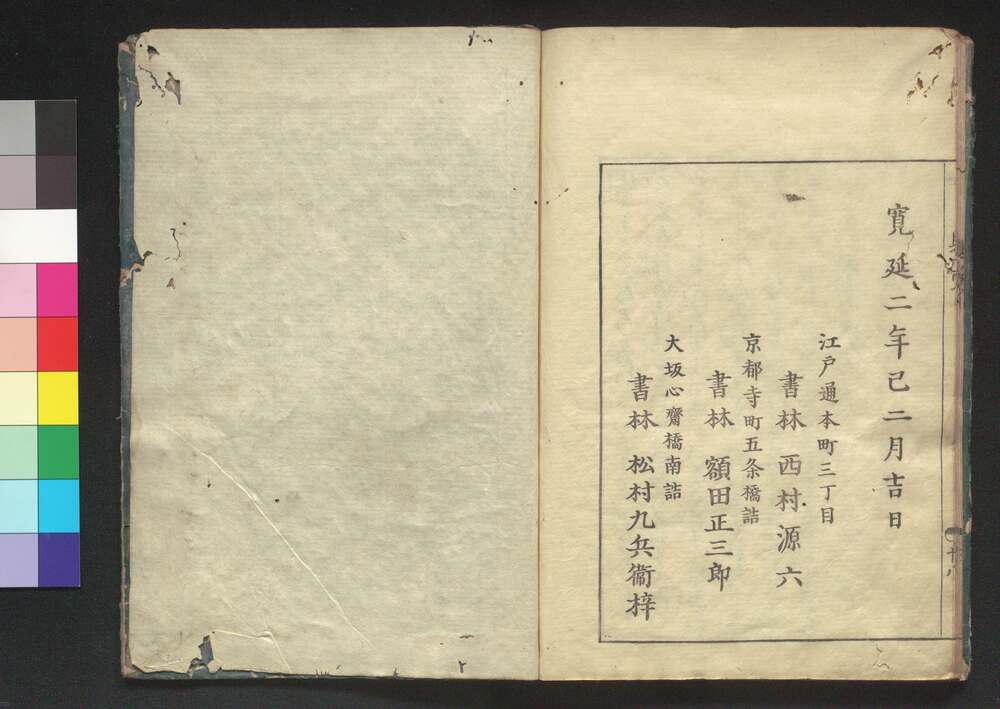 寛延二年己二月吉日
江戸通本町三丁目
書林 西村源六
京都寺町五条橋詰
書林 額田正三郎
大坂心齋橋南詰
書林 松村九兵衞梓